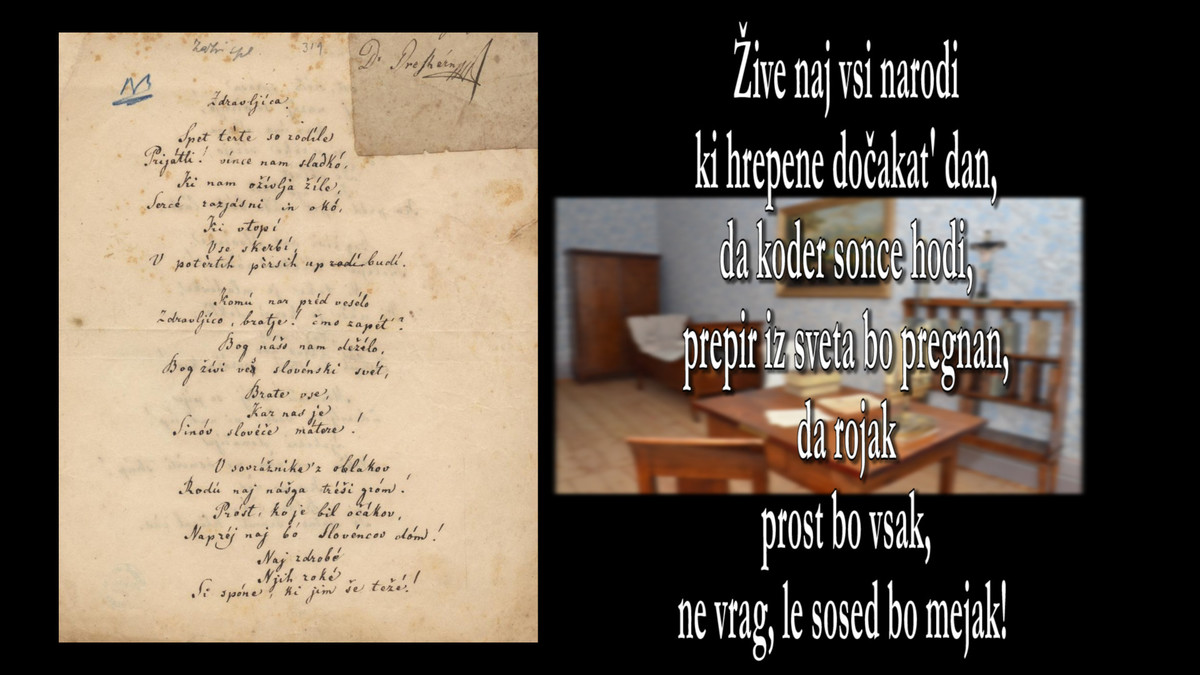 319.
Dr Preshérn
NB
Zdravljica.
Spet terte so rodile
Prijátli! vince nam sladkó,
Ki nam oživlja žile,
Sercé razjásni in okó,
Ki vtopi
Vse skerbí,
V potêrtih pêrsih up rodi budí.
Komú nar préd vesélo
Zdravljico, bratje! čmo zapét'?
Bog nášo nam deželo,
Bog živi ves slovénski svet,
Brate vse,
Kar nas je
Sinóv slovéče mátere!
V sovrážnike 'z oblákov
Rodú naj nášga tréši gróm!
Próst, ko je bil očákov,
Naprêj naj bó Slovéncov dóm!
Naj zdrobé
Njih roké
Si spóne, ki jim še težé!
Žive naj vsi narodi
ki hrepene dočakat' dan,
da koder sonce hodi,
prepir iz sveta bo pregnan,
da rojak
prost bo vsak,
ne vrag, le sosed bo mejak!